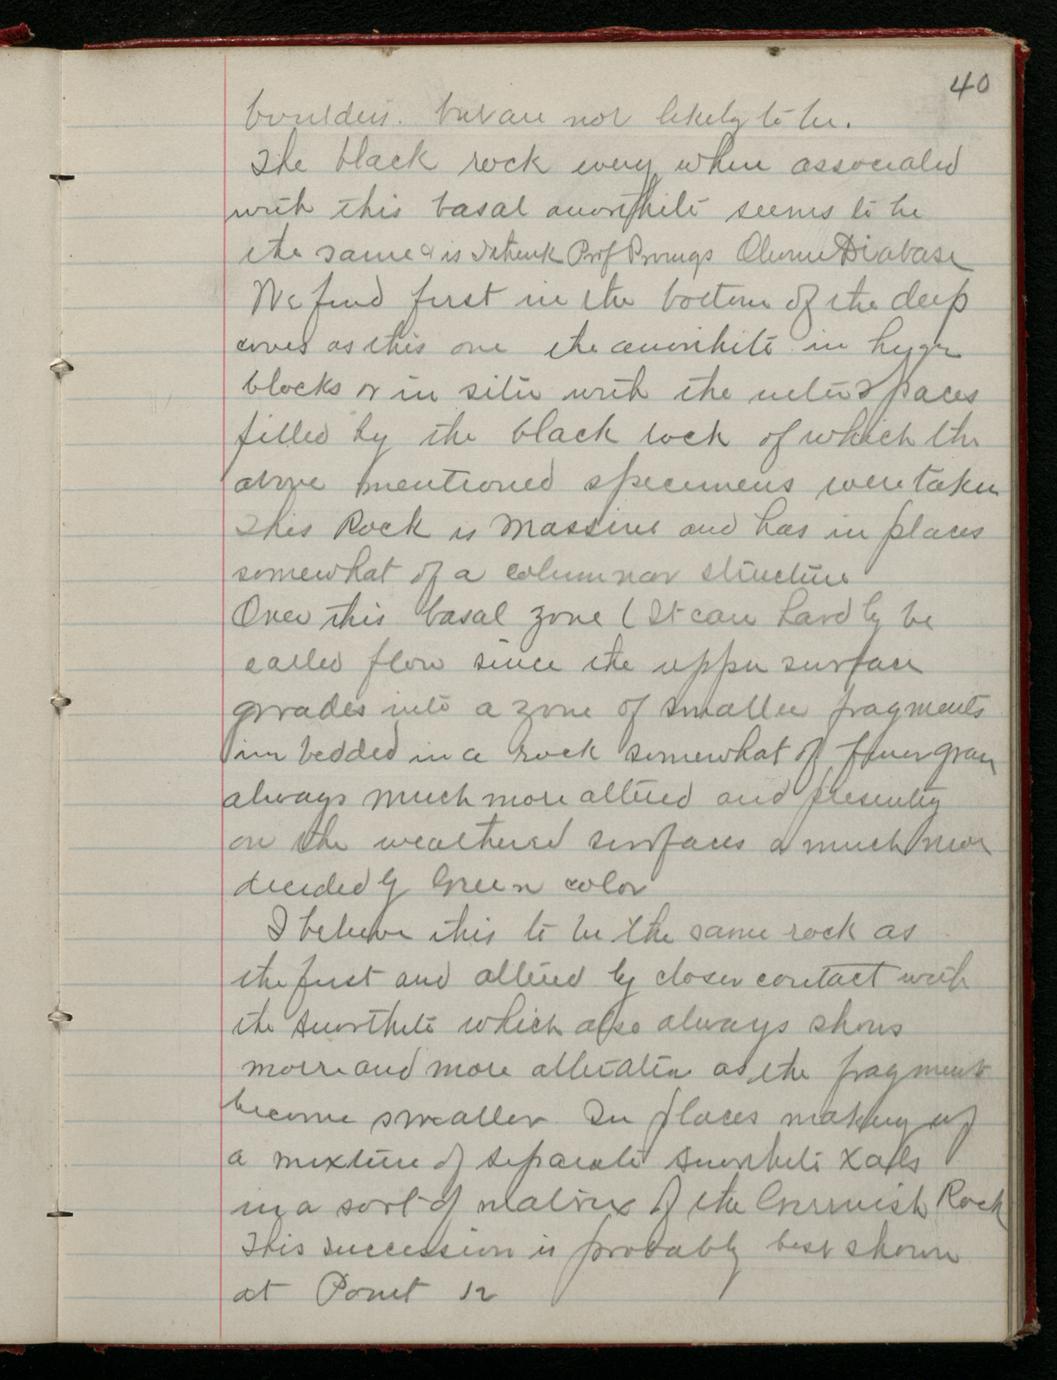 40
boulders. but are not likely to be.
The black rock every where associated
with this basal anorthite seems to be
the same & is I think Prof Olivine Diabase
We find first in the bottom of the deep
coves as this one the anorthite in huge
blocks or in situ with the interspaces
filled by the black rock of which the
above mentioned specimens were taken
This Rock is Massive and has in places
somewhat of a columnar structure
Over this basal zone ( It can hardly be
called flow since the upper surface
grades into a zone of smaller fragments
imbedded in a rock somewhat of finer grain
always much more altered and presenting
on the weathered surfaces a much more
decidedly Green color
I believe this to be the same rock as
the first and altered by closer contact with
the anorthite which also always shows
more and more alteration as the fragments
become smaller In places making up
a mixture of separate anorthite Xals
in a sort of matrix of the Greenish Rock
This succession is probably best shown
at Point 12